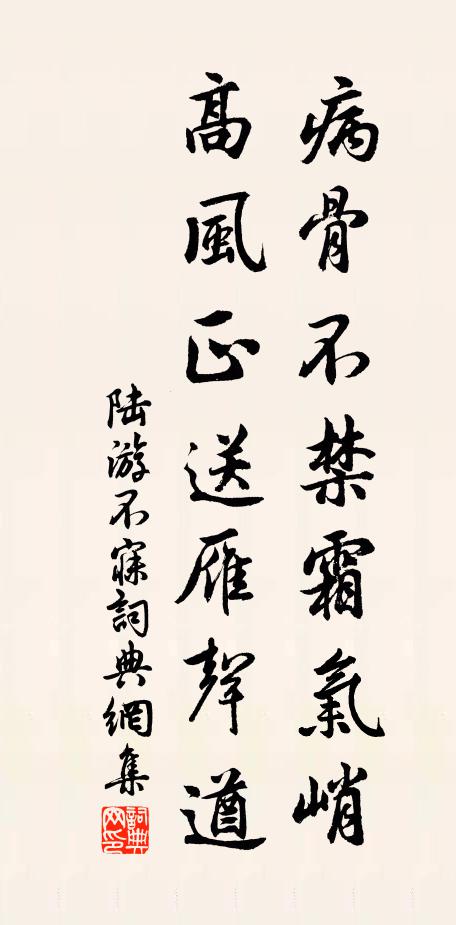 病骨不禁霜氣峭
高風正送雁聲遒
陆游不寐詞典網集
詞典网印